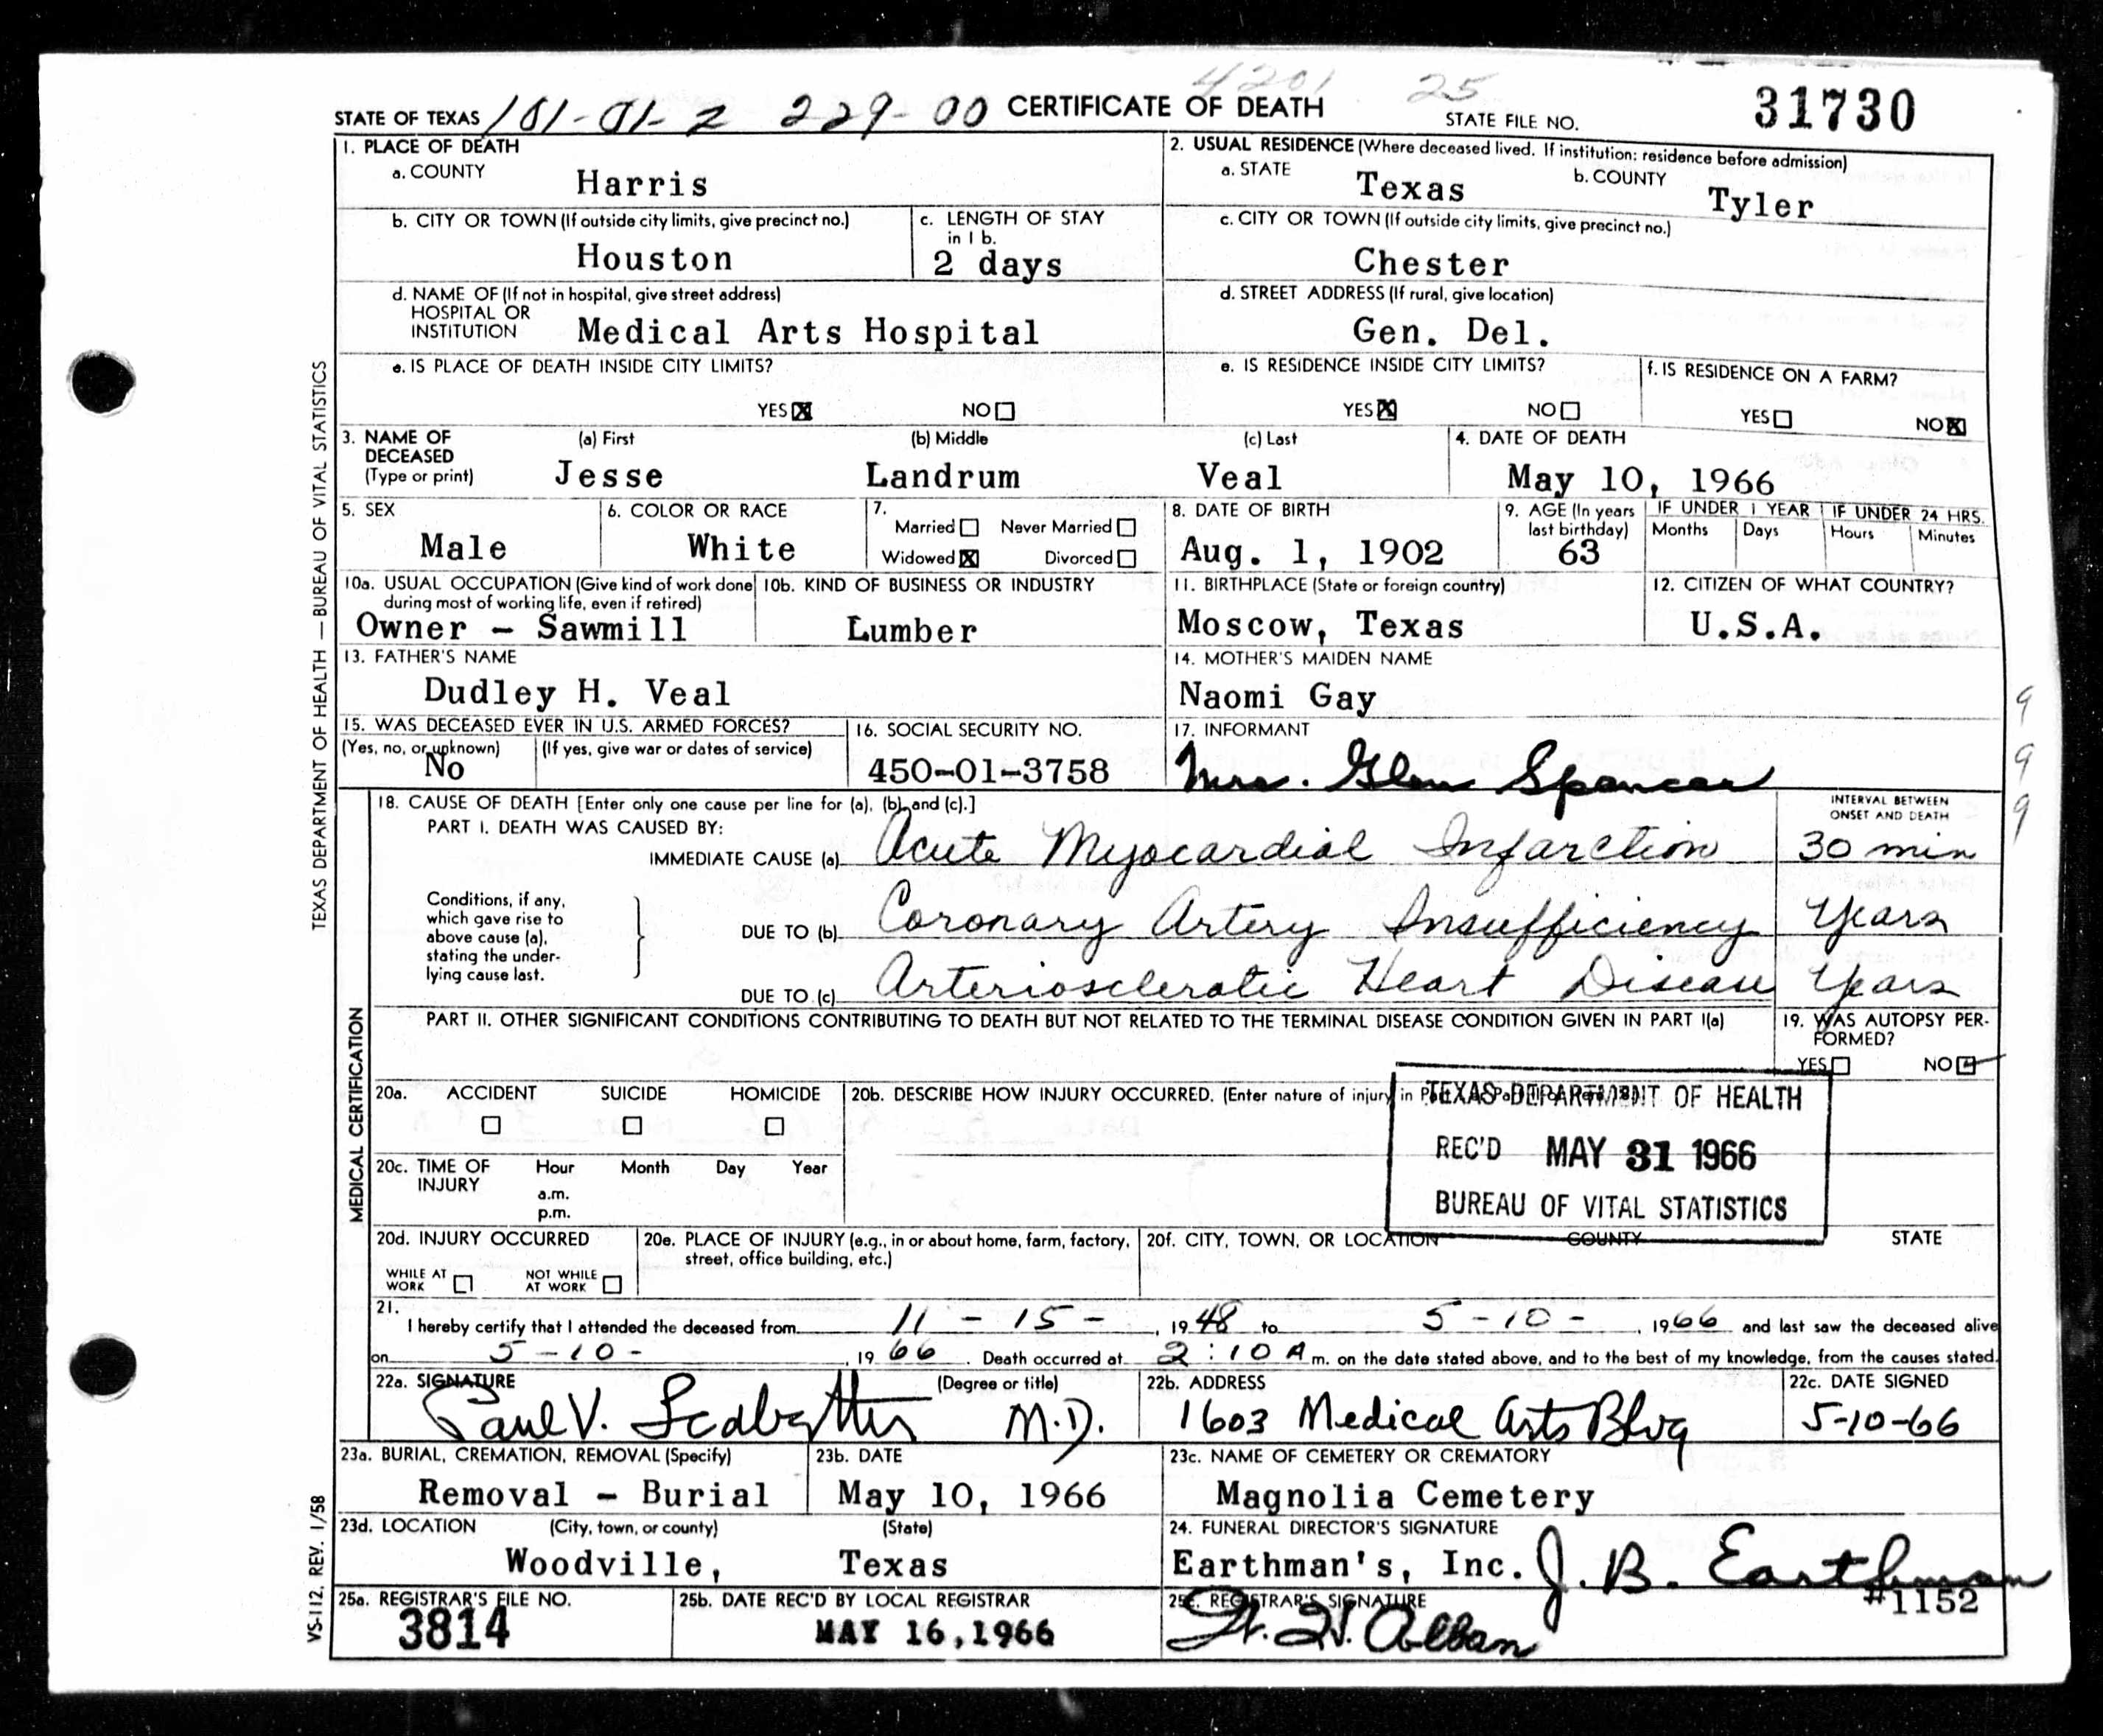 4201 25
STATE OF TEXAS 101-01-2 229-00 CERTIFICATE OF DEATH STATE FILE NO. 31730
1. PLACE OF DEATH
a. COUNTY Harris
2. USUAL RESIDENCE (Where deceased lived. If institution: residence before admission)
a. STATE Texas b. COUNTY Tyler
b. CITY OR TOWN (If outside city limits, give precinct no.) Houston
c. LENGTH OF STAY in 1 b. 2 days
c. CITY OR TOWN (If outside city limits, give precinct no.) Chester
d. NAME OF (If not in hospital, give street address)
HOSPITAL OR
INSTITUTION Medical Arts Hospital
d. STREET ADDRESS (If rural, give location)
Gen. Del.
e. IS PLACE OF DEATH INSIDE CITY LIMITS?
YES ☒ NO ☐
e. IS RESIDENCE INSIDE CITY LIMITS?
YES ☒ NO ☐
f. IS RESIDENCE ON A FARM?
YES ☐ NO ☒
3. NAME OF DECEASED (Type or print)
(a) First (b) Middle (c) Last
Jesse Landrum Veal
4. DATE OF DEATH
May 10, 1966
5. SEX
Male
6. COLOR OR RACE
White
7.
Married ☐ Never Married ☐
Widowed ☒ Divorced ☐
8. DATE OF BIRTH
Aug. 1, 1902
9. AGE (In years last birthday)
63
IF UNDER 1 YEAR IF UNDER 24 HRS.
Months Days Hours Minutes
10a. USUAL OCCUPATION (Give kind of work done
during most of working life, even if retired)
Owner - Sawmill
10b. KIND OF BUSINESS OR INDUSTRY
Lumber
11. BIRTHPLACE (State or foreign country)
Moscow, Texas
12. CITIZEN OF WHAT COUNTRY?
U.S.A.
13. FATHER'S NAME
Dudley H. Veal
14. MOTHER'S MAIDEN NAME
Naomi Gay
15. WAS DECEASED EVER IN U.S. ARMED FORCES?
(Yes, no, or unknown) (If yes, give war or dates of service)
No
16. SOCIAL SECURITY NO.
450-01-3758
17. INFORMANT
Mrs. Glen Spencer
9
9
9
18. CAUSE OF DEATH [Enter only one cause per line for (a), (b), and (c).]
INTERVAL BETWEEN
ONSET AND DEATH
PART I. DEATH WAS CAUSED BY:
IMMEDIATE CAUSE (a) Acute Myocardial Infarction 30 min
Conditions, if any,
which gave rise to
above cause (a),
stating the under-
lying cause last.
DUE TO (b) Coronary Artery Insufficiency Years
DUE TO (c) Arteriosclerotic Heart Disease Years
PART II. OTHER SIGNIFICANT CONDITIONS CONTRIBUTING TO DEATH BUT NOT RELATED TO THE TERMINAL DISEASE CONDITION GIVEN IN PART I(a)
19. WAS AUTOPSY PER-
FORMED?
YES ☐ NO ☒
20a. ACCIDENT SUICIDE HOMICIDE
☐ ☐ ☐
20b. DESCRIBE HOW INJURY OCCURRED. (Enter nature of injury in
TEXAS DEPARTMENT OF HEALTH
REC'D MAY 31 1966
BUREAU OF VITAL STATISTICS
20c. TIME OF INJURY
Hour Month Day Year
a.m.
p.m.
20d. INJURY OCCURRED
WHILE AT WORK ☐ NOT WHILE AT WORK ☐
20e. PLACE OF INJURY (e.g., in or about home, farm, factory,
street, office building, etc.)
20f. CITY, TOWN, OR LOCATION COUNTY STATE
21.
I hereby certify that I attended the deceased from 11 - 15 - , 19 48 to 5 - 10 - , 1966 and last saw the deceased alive
on 5 - 10 - , 19 66 . Death occurred at 2:10 A m. on the date stated above, and to the best of my knowledge, from the causes stated.
22a. SIGNATURE (Degree or title)
Paul V. Ledbetter M.D.
22b. ADDRESS
1603 Medical Arts Bldg
22c. DATE SIGNED
5-10-66
23a. BURIAL, CREMATION, REMOVAL (Specify)
Removal - Burial
23b. DATE
May 10, 1966
23c. NAME OF CEMETERY OR CREMATORY
Magnolia Cemetery
23d. LOCATION (City, town, or county) (State)
Woodville, Texas
24. FUNERAL DIRECTOR'S SIGNATURE
Earthman's, Inc. J. B. Earthman
#1152
25a. REGISTRAR'S FILE NO.
3814
25b. DATE REC'D BY LOCAL REGISTRAR
MAY 16, 1966
25c. REGISTRAR'S SIGNATURE
Alban
TEXAS DEPARTMENT OF HEALTH — BUREAU OF VITAL STATISTICS
MEDICAL CERTIFICATION
VS-112. REV. 1/58